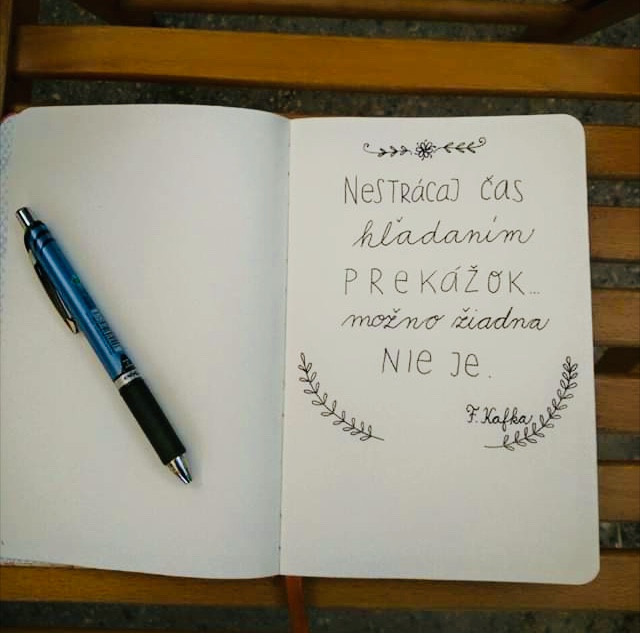 NeSTRácaJ čas
hľadaním
PREKÁŽOK...
možno žiadna
NIE JE.
F. Kafka